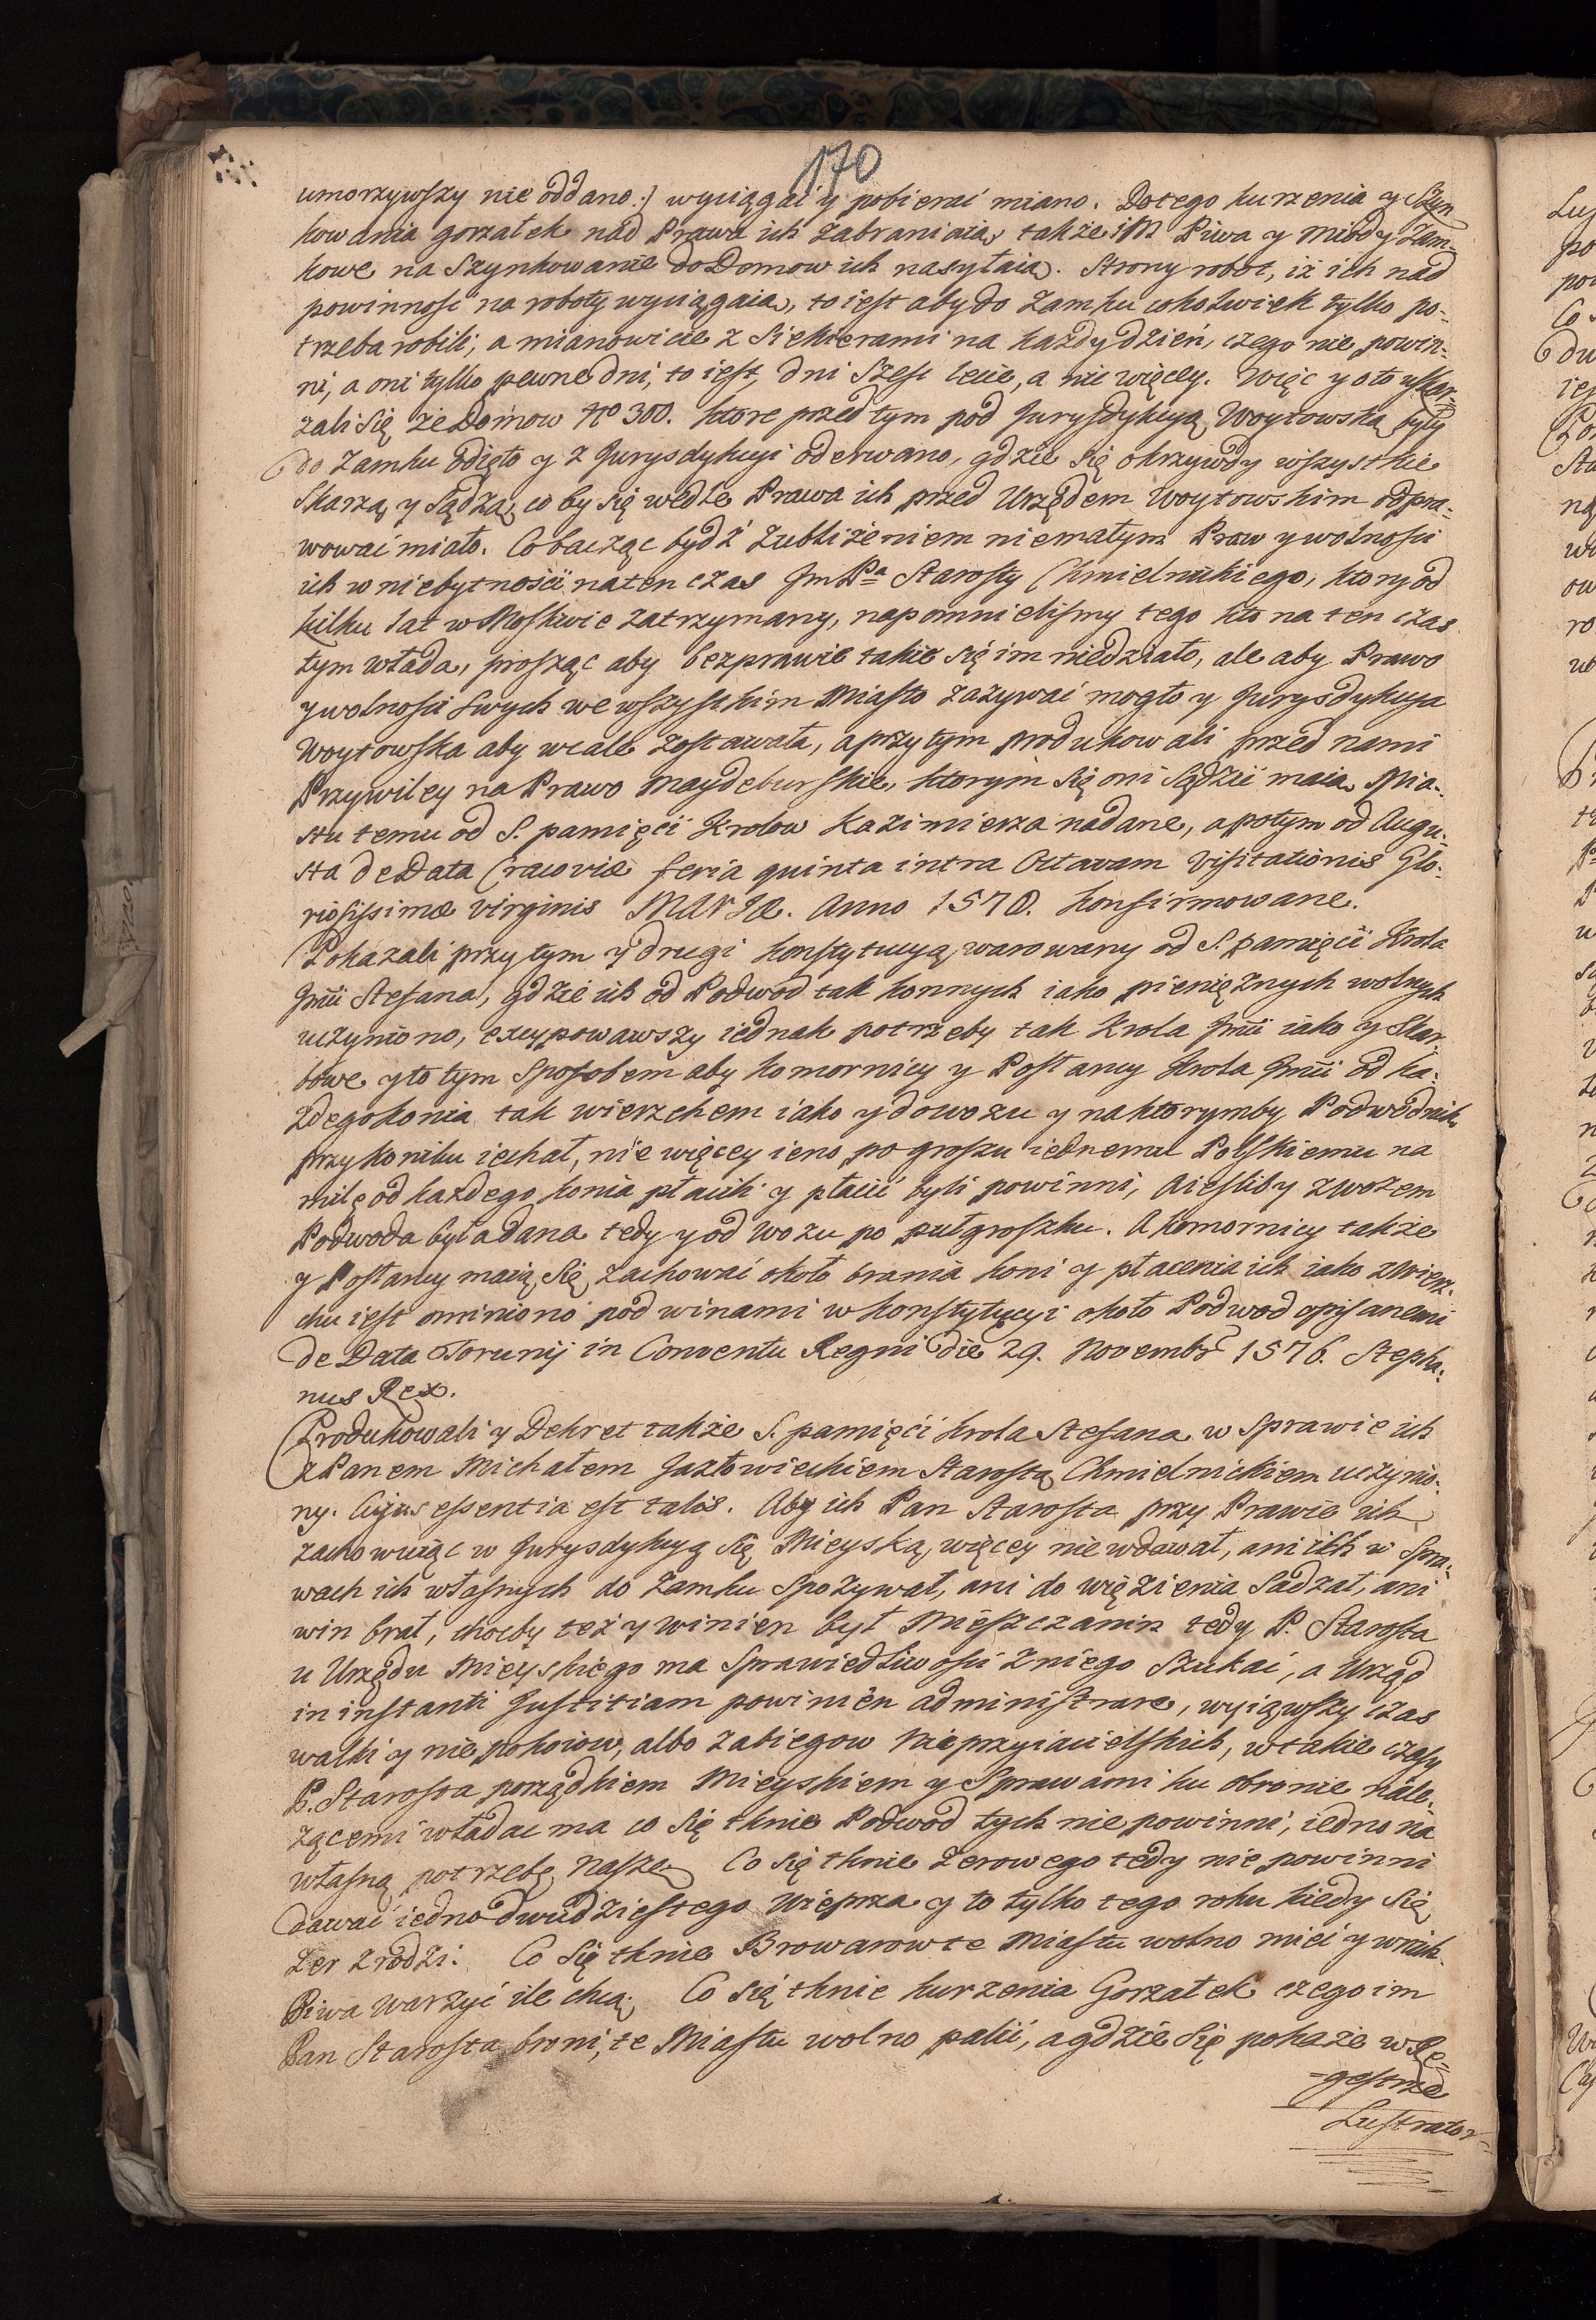 170
umorzywszy nie oddano:) wyciągać y pobierać miano. Do tego kurzenia y Szyn
kowania gorzałek nad Prawa ich zabraniaią, także im Piwa y miody Zam-
kowe na Szynkowanie do Domow ich nasyłaią. Strony robot, iż ich nad
powinność na roboty wyciągaią, to iest aby do Zamku cokolwiek tylko po-
trzeba robili, a mianowicie z Siekierami na każdy dzień, czego nie powin-
ni, a oni tylko pewne dni, to iest, dni Szesc lecie, a nie więcey. Więc y oto uskar-
żali się, że Domow No 300. ktore przed tym pod Jurysdykcyą Woytowską były
do Zamku odięto y z Jurysdykcyi oderwano, gdzie się o krzywdy wszystkie
Skarzą y Sądzą, co by się wedle Prawa ich przed Urzędem Woytowskim odpra-
wować miało. Co bacząc bydź z ubliżeniem niemałym Praw y wolności
ich w niebytności na ten czas Jm Pa Starosty Chmielnickiego, ktory od
kilku lat w Moskwie zatrzymany, napomnielismy tego kto na ten czas
tym włada, prosząc aby bezprawie takie się im niedziało, ale aby Prawo
y wolności swych we wszystkim Miasto zażywać mogło y Jurysdykcya
Woytowska aby wcale zostawała, a przy tym produkowali przed nami
Przywiley na Prawo Maydeburskie, ktorym się oni Sądzić maią, Mia-
stu temu od S. pamięći Krolow Kazimierza nadane, a potym od Augu-
sta de Data Cracoviæ feria quinta intra Octavam Visitationis Glo-
riosissimæ Virginis MARIÆ. Anno 1570. konfirmowane.
Pokazali przy tym y drugi konstytucyą warowany od S. pamięći Krola
Jmći Stefana, gdzie ich od Podwod tak konnych iako pieniężnych wolnych
uczyniono, excypowawszy iednak potrzeby tak Krola Jmći iako y Skar-
bowe y to tym Sposobem aby komornicy y Posłancy Krola Jmći od ka-
żdego konia tak wierzchem iako y do wozu y na ktorymby Podwodnik
przy komiku iechał, nie więcey ieno po groszu iednemu Polskiemu na
milę od każdego konia płacili y płacić byli powinni, A iesliby z wozem
Podwoda była dana tedy y od wozu po puł groszku. A komornicy także
y Posłancy maią się zachować około brania koni y płacenia ich iako zwierz-
chu iest omieniono pod winami w konstytucyi około Podwod opisanemi
de Data Torunij in Conventu Regni die 29. Novembr 1576. Stepha-
nus Rex.
Produkowali y Dekret także S. pamięći Krola Stefana w Sprawie ich
z Panem Michałem Jazłowieckiem Starostą Chmielnickiem uczynio-
ny. Cujus essentia est talis. Aby ich Pan Starosta przy Prawie ich
zachowuiąc w Jurysdykcyą się Mieyską, więcey nie wdawał, ani ich w Spra-
wach ich własnych do Zamku Spozywał, ani do więzienia Sadzał, ani
win brał, choćby też y winien był Mieszczanin tedy P. Starosta
u Urzędu Mieyskiego ma Sprawiedliwości z niego Szukać, a Urząd
in instanti Justitiam powinien administrare, wyiąwszy czas
walki y niepokoiow, albo zabiegow Nieprzyiacielskich, w takie czasy
P. Starosta porządkiem Mieyskiem y Sprawami ku obronie nale-
żącemi władac ma co się tknie Podwod tych nie powinni, iedno na
własną potrzebę Naszę Co się tknie żerowego tedy nie powinni
dawać iedno dwudziestego Wieprza y to tylko tego roku kiedy się
żer zrodzi: Co się tknie Browarow te Miastu wolno mieć y w nich
Piwa warzyć ile chcą; Co się tknie kurzenia Gorzałek czego im
Pan Starosta broni, te Miastu wolno palić, a gdzie się pokaże w Re-
-gestrze
Lustrator-